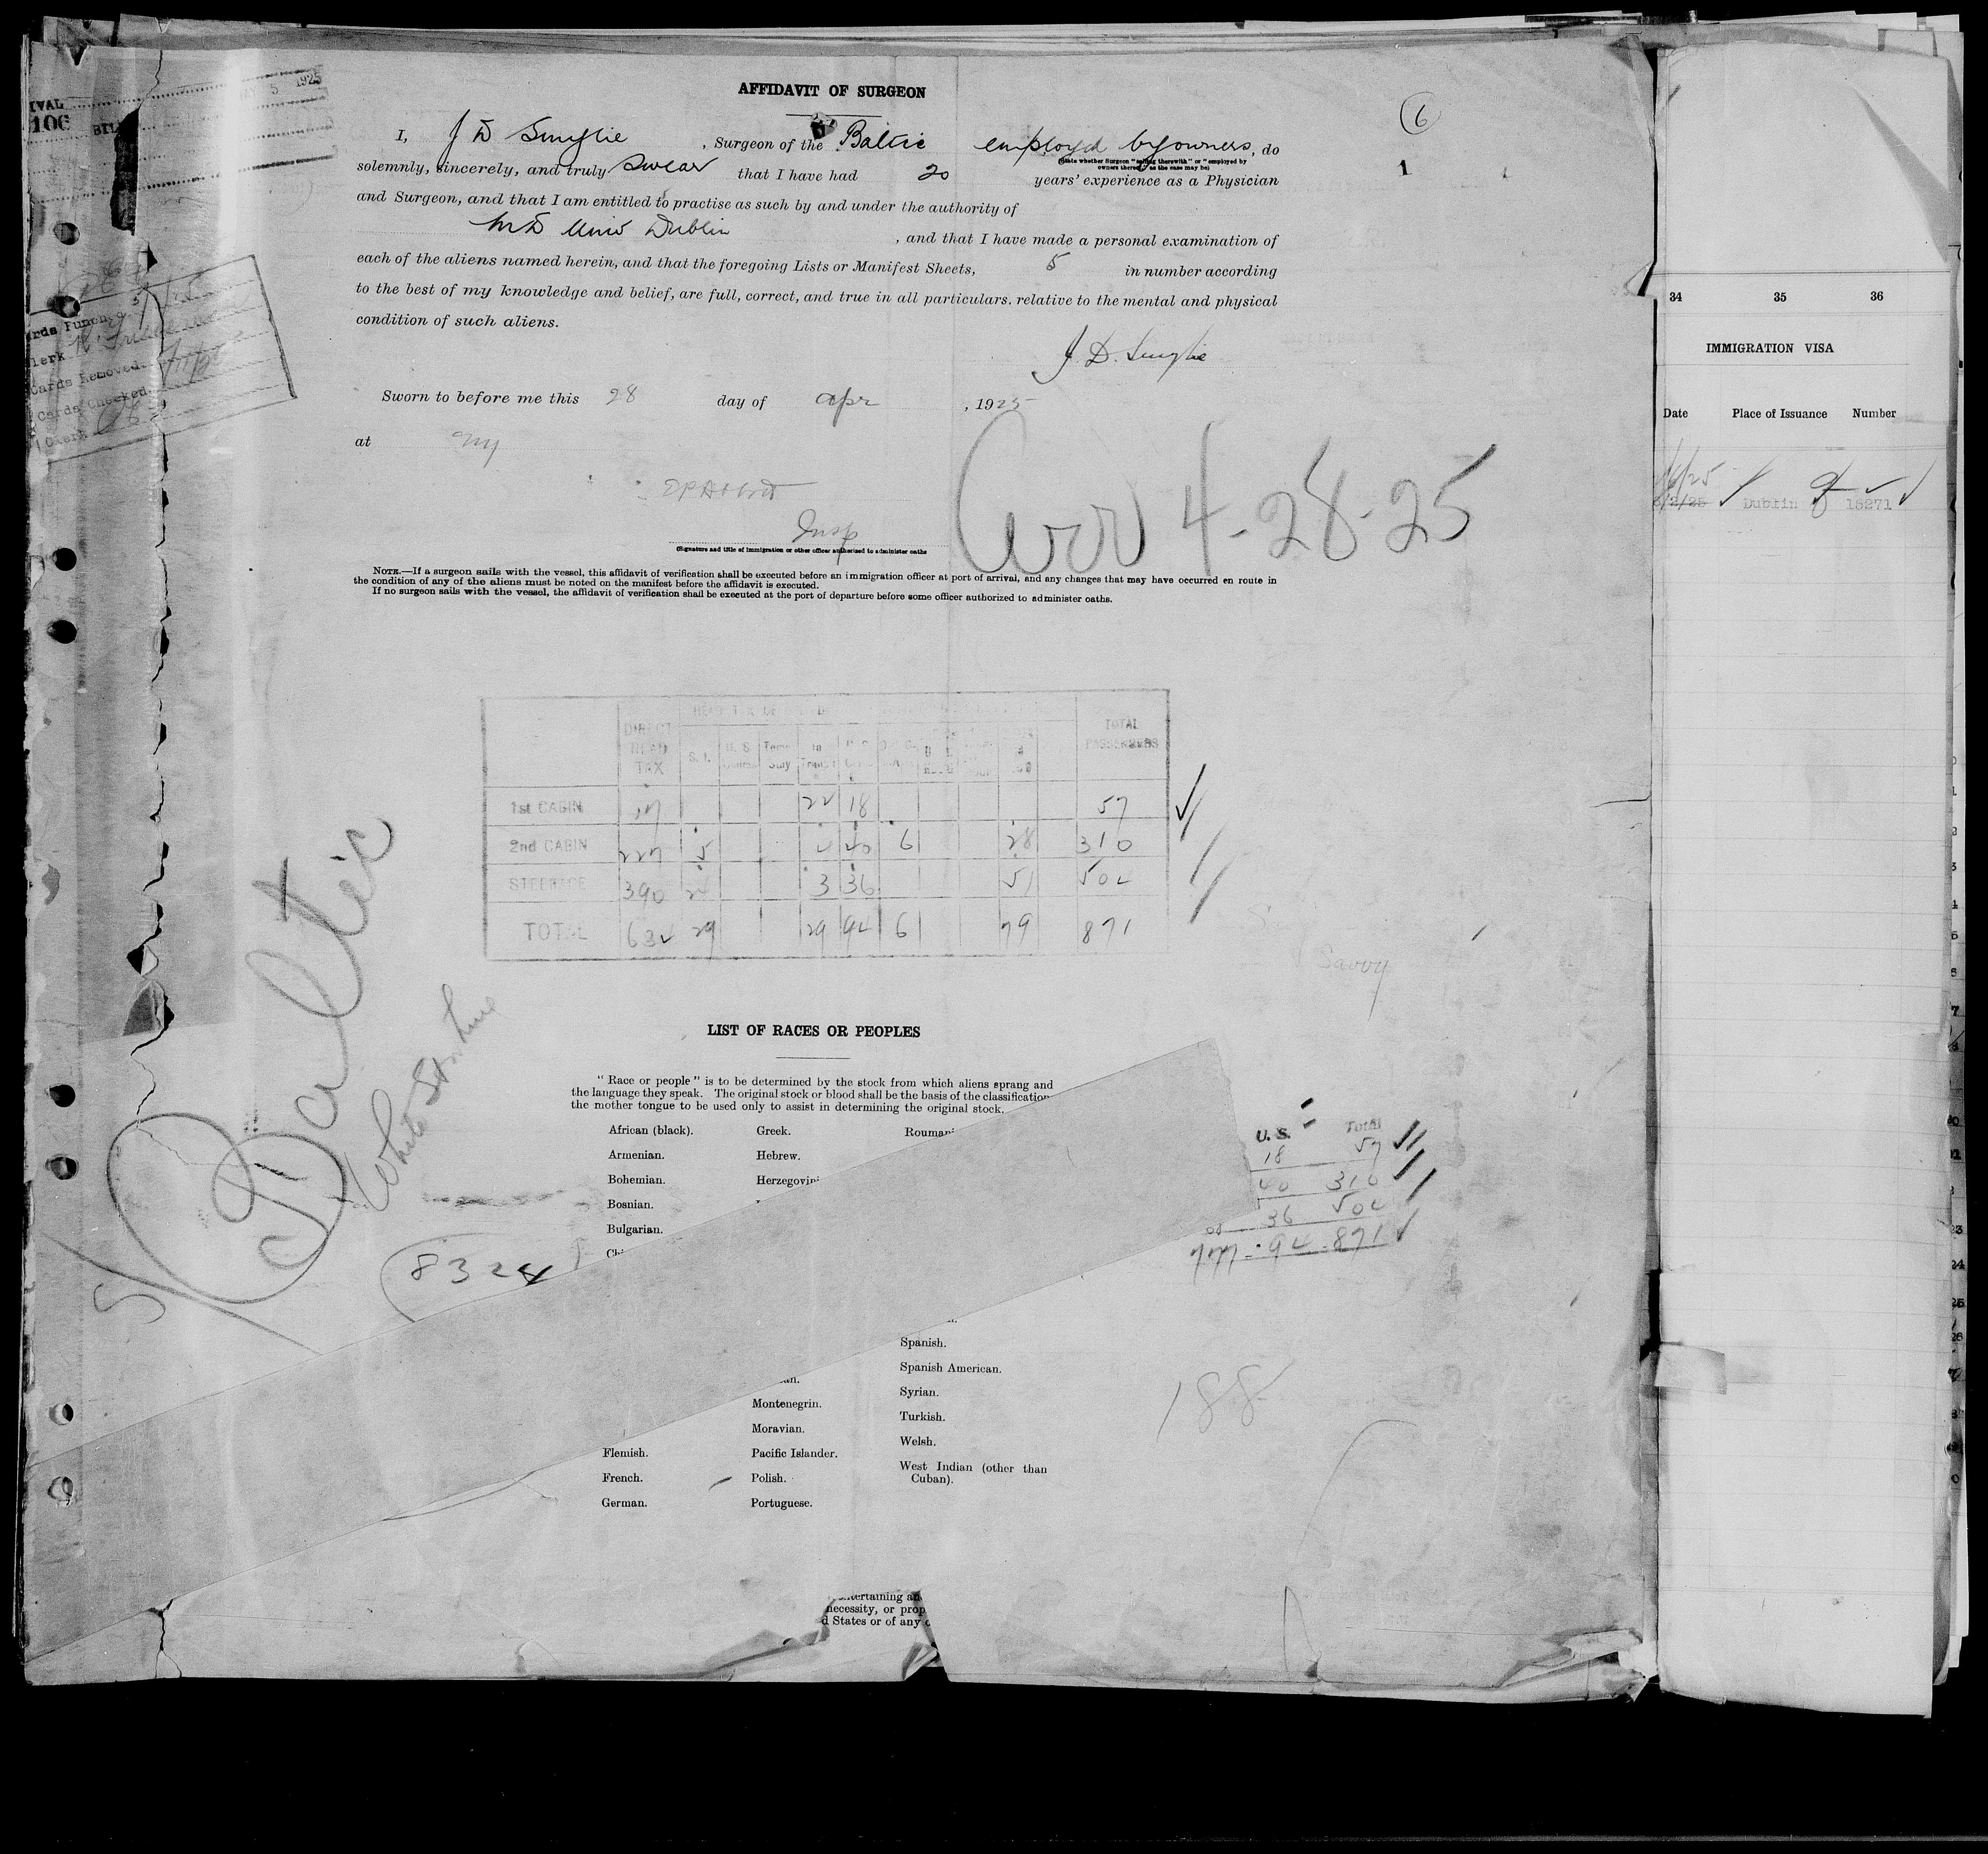 MAY 5 1925
IVAL
106
AFFIDAVIT OF SURGEON
6
1
I, J D Smylie, Surgeon of the Baltic employed by owners, do
(State whether Surgeon "sailing therewith" or "employed by
owners thereof," as the case may be)
solemnly, sincerely, and truly swear that I have had 20 years' experience as a Physician
and Surgeon, and that I am entitled to practise as such by and under the authority of
MD Univ Dublin, and that I have made a personal examination of
each of the aliens named herein, and that the foregoing Lists or Manifest Sheets, 5 in number according
to the best of my knowledge and belief, are full, correct, and true in all particulars, relative to the mental and physical
condition of such aliens.
J. D. Smylie
Sworn to before me this 28 day of apr, 1925
at NY
Insp
(Signature and title of immigration or other officer authorized to administer oaths
Arr 4-28-25
NOTE.—If a surgeon sails with the vessel, this affidavit of verification shall be executed before an immigration officer at port of arrival, and any changes that may have occurred en route in
the condition of any of the aliens must be noted on the manifest before the affidavit is executed.
If no surgeon sails with the vessel, the affidavit of verification shall be executed at the port of departure before some officer authorized to administer oaths.
Cards Punched
Clerk
Cards Removed
Cards Checked
Clerk
DIRECT HEAD TAX S. I. U. S. Temp Stay In Transit TOTAL PASSENGERS
1st CABIN 17 22 18 57
2nd CABIN 227 5 4 40 6 28 310
STEERAGE 390 24 3 36 51 504
TOTAL 634 29 29 94 6 79 871
Savoy
Baltic
White Star Line
8324
LIST OF RACES OR PEOPLES
"Race or people" is to be determined by the stock from which aliens sprang and
the language they speak. The original stock or blood shall be the basis of the classification
the mother tongue to be used only to assist in determining the original stock.
African (black). Greek. Roumani
Armenian. Hebrew.
Bohemian. Herzegovini
Bosnian.
Bulgarian.
Chi
U. S. Total
18 57
40 310
36 504
777 - 94 - 871
Spanish.
Spanish American.
Syrian.
Montenegrin. Turkish.
Moravian. Welsh.
Flemish. Pacific Islander. West Indian (other than
Cuban).
French. Polish.
German. Portuguese.
188
ntertaining an
necessity, or prop
d States or of any
34 35 36
IMMIGRATION VISA
Date Place of Issuance Number
Dublin 15271